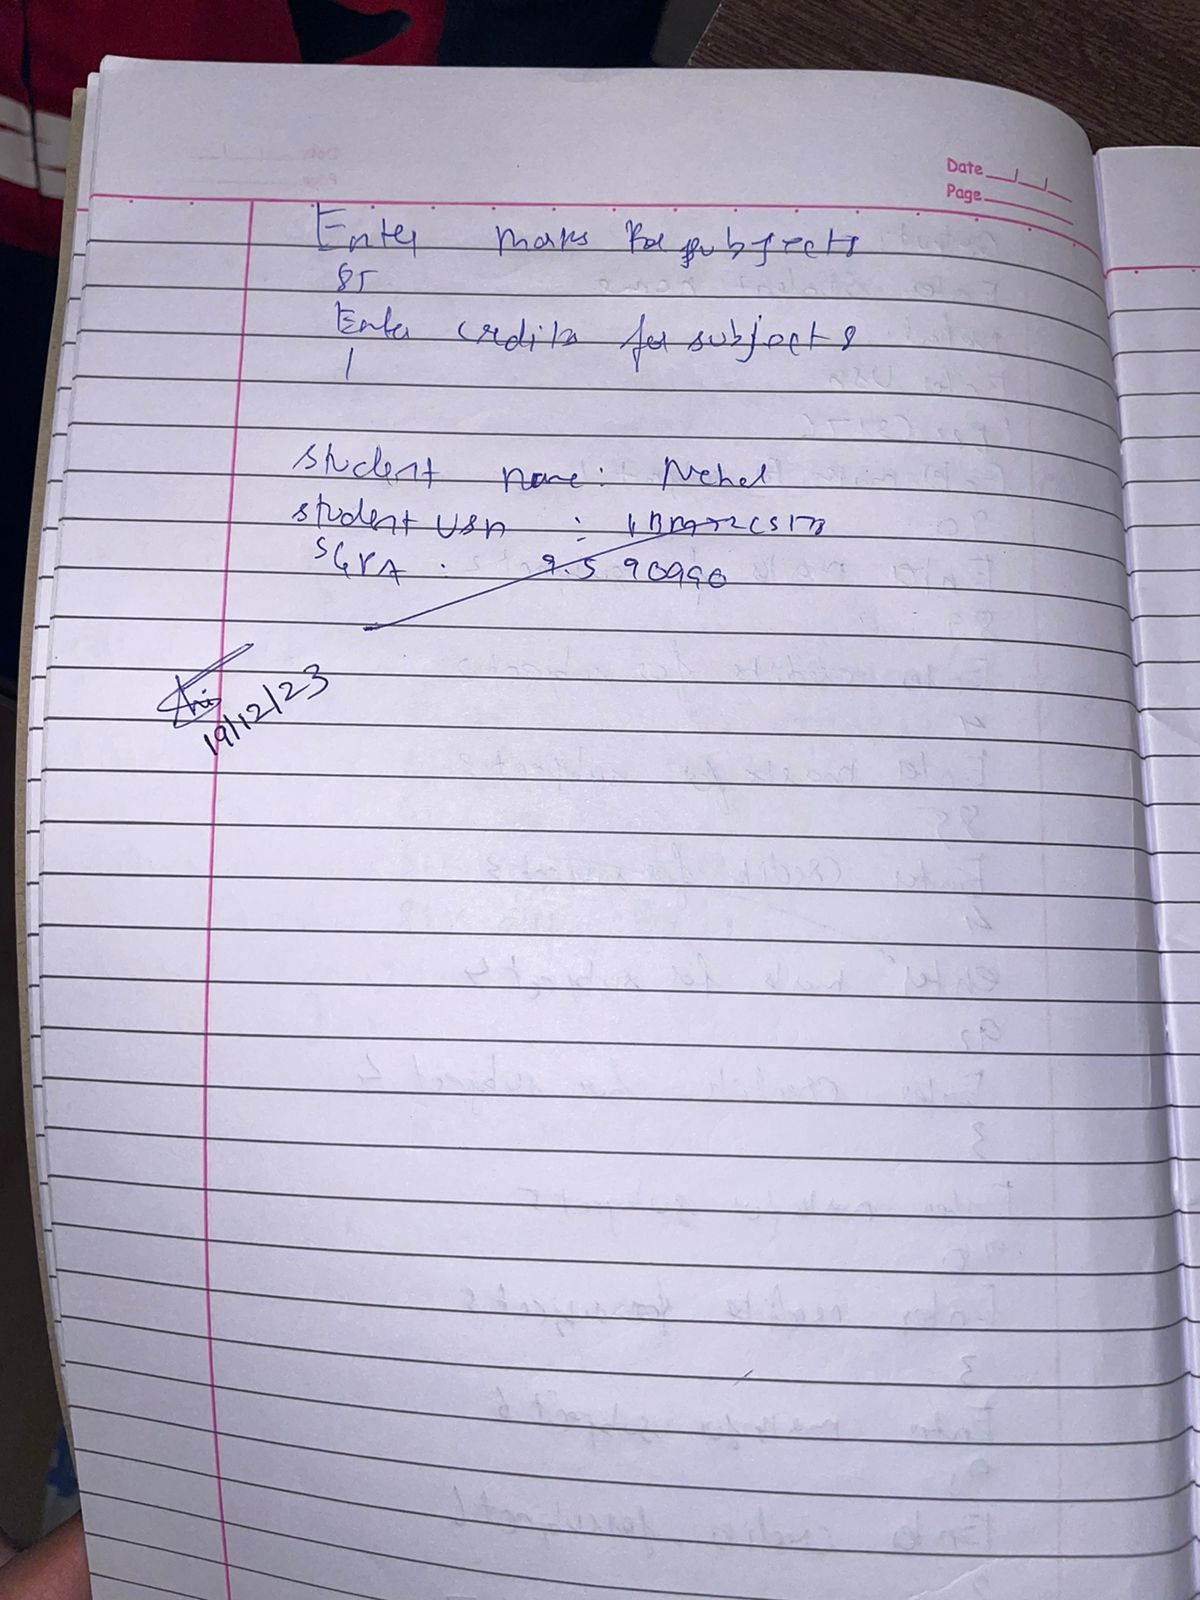 Date
Page
Enter marks for subject 8
85
Enter credits for subject 8
1
student name: Nehal
student USN : 1BM22CS173
SGPA : 9.590990
19/12/23